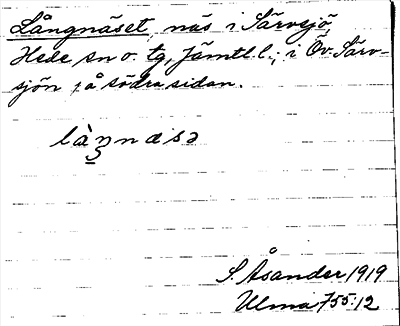 Långnäset, näs i Särvsjö,
Hede sn o. tg, Jämtl. l.; i Öv. Särv-
sjön, å södra sidan.
làŋnæsə
S. Åsander 1919
Ulma 755:12